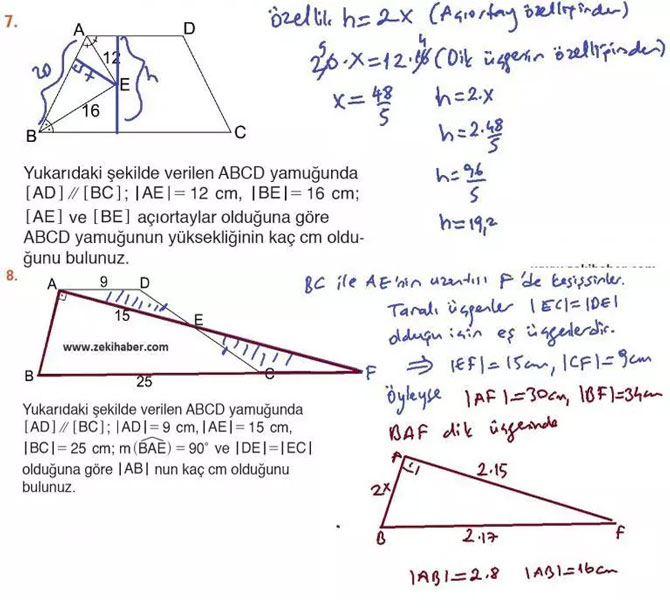 7.
A
D
20
12
x
h
E
16
B
C
özellik h = 2x (Açıortay özelliğinden)
20·x = 12·16 (Dik üçgenin özelliğinden)
5
4
x = 48/5
h = 2.x
h = 2.48/5
h = 96/5
h = 19,2
Yukarıdaki şekilde verilen ABCD yamuğunda
[AD] // [BC]; |AE| = 12 cm, |BE| = 16 cm;
[AE] ve [BE] açıortaylar olduğuna göre
ABCD yamuğunun yüksekliğinin kaç cm oldu-
ğunu bulunuz.
8.
A
9
D
15
E
www.zekihaber.com
B
25
C
F
BC ile AE'nin uzantısı F'de kesişsinler.
Taralı üçgenler |EC|=|DE|
olduğu için eş üçgenlerdir.
⇒ |EF|=15cm, |CF|=9cm
Öyleyse |AF|=30cm, |BF|=34cm
BAF dik üçgeninde
Yukarıdaki şekilde verilen ABCD yamuğunda
[AD] // [BC]; |AD| = 9 cm, |AE| = 15 cm,
|BC| = 25 cm; m(BAE) = 90° ve |DE|=|EC|
olduğuna göre |AB| nun kaç cm olduğunu
bulunuz.
A
2.15
2x
B
2.17
F
|AB|=2.8 |AB|=16cm